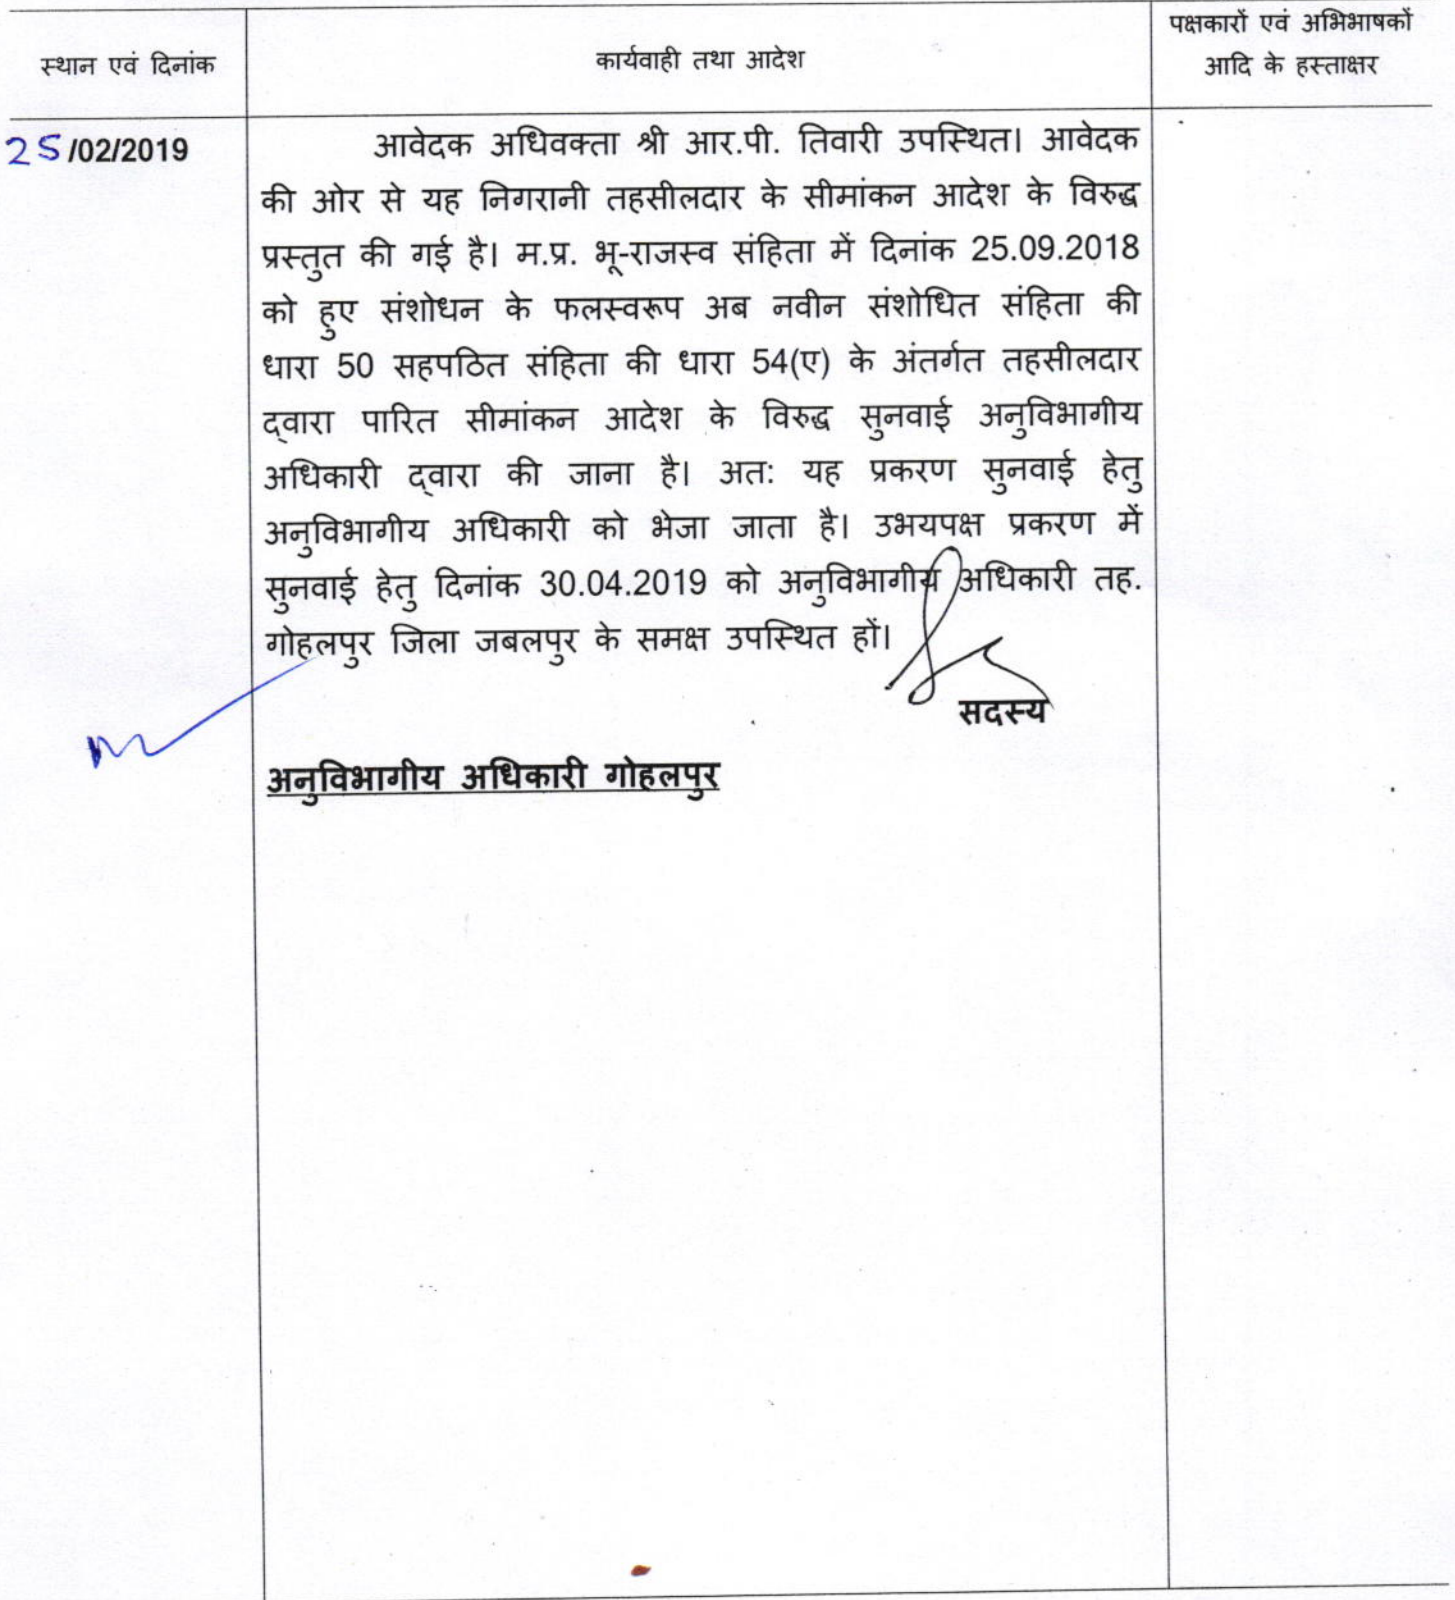 स्थान एवं दिनांक
कार्यवाही तथा आदेश
पक्षकारों एवं अभिभाषकों
आदि के हस्ताक्षर
25/02/2019
आवेदक अधिवक्ता श्री आर.पी. तिवारी उपस्थित। आवेदक
की ओर से यह निगरानी तहसीलदार के सीमांकन आदेश के विरुद्ध
प्रस्तुत की गई है। म.प्र. भू-राजस्व संहिता में दिनांक 25.09.2018
को हुए संशोधन के फलस्वरूप अब नवीन संशोधित संहिता की
धारा 50 सहपठित संहिता की धारा 54(ए) के अंतर्गत तहसीलदार
द्वारा पारित सीमांकन आदेश के विरुद्ध सुनवाई अनुविभागीय
अधिकारी द्वारा की जाना है। अत: यह प्रकरण सुनवाई हेतु
अनुविभागीय अधिकारी को भेजा जाता है। उभयपक्ष प्रकरण में
सुनवाई हेतु दिनांक 30.04.2019 को अनुविभागीय अधिकारी तह.
गोहलपुर जिला जबलपुर के समक्ष उपस्थित हों।
सदस्य
अनुविभागीय अधिकारी गोहलपुर